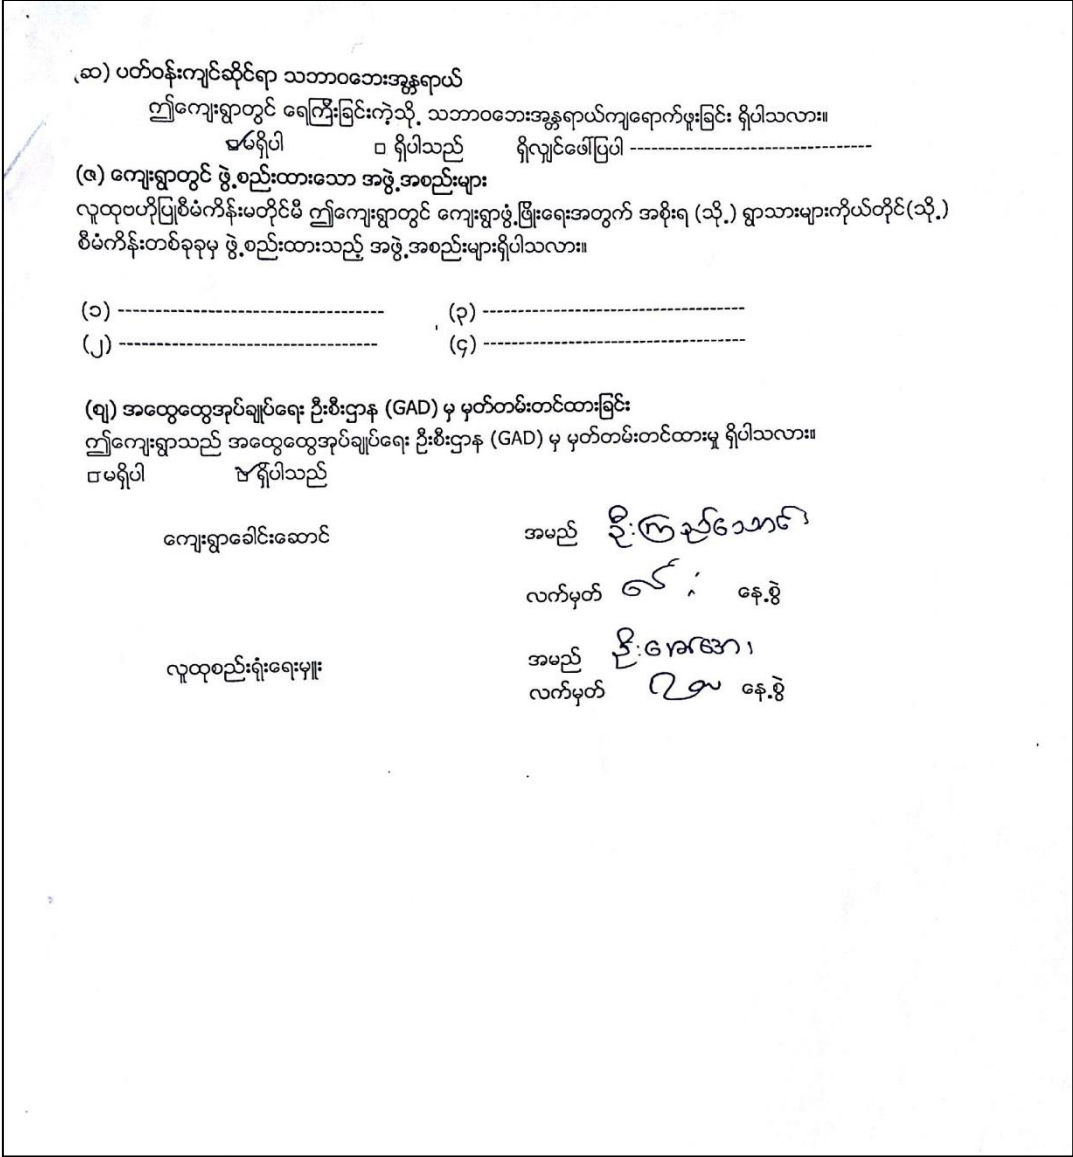 (ဆ) ပတ်ဝန်းကျင်ဆိုင်ရာ သဘာဝဘေးအန္တရာယ်
ဤကျေးရွာတွင် ရေကြီးခြင်းကဲ့သို့ သဘာဝဘေးအန္တရာယ်ကျရောက်ဖူးခြင်း ရှိပါသလား။
☑ မရှိပါ □ ရှိပါသည် ရှိလျှင်ဖေါ်ပြပါ ----------------------------------
(ဇ) ကျေးရွာတွင် ဖွဲ့စည်းထားသော အဖွဲ့အစည်းများ
လူထုဗဟိုပြုစီမံကိန်းမတိုင်မီ ဤကျေးရွာတွင် ကျေးရွာဖွံ့ဖြိုးရေးအတွက် အစိုးရ (သို့) ရွာသားများကိုယ်တိုင်(သို့)
စီမံကိန်းတစ်ခုခုမှ ဖွဲ့စည်းထားသည့် အဖွဲ့အစည်းများရှိပါသလား။
(၁) -------------------------------------- (၃) -------------------------------------
(၂) ------------------------------------- (၄) -------------------------------------
(ဈ) အထွေထွေအုပ်ချုပ်ရေး ဦးစီးဌာန (GAD) မှ မှတ်တမ်းတင်ထားခြင်း
ဤကျေးရွာသည် အထွေထွေအုပ်ချုပ်ရေး ဦးစီးဌာန (GAD) မှ မှတ်တမ်းတင်ထားမှု ရှိပါသလား။
□ မရှိပါ ☑ ရှိပါသည်
ကျေးရွာခေါင်းဆောင် အမည် ဦးကြည်သောင်း
လက်မှတ် နေ့စွဲ
လူထုစည်းရုံးရေးမှူး အမည် ဦး
လက်မှတ် နေ့စွဲ